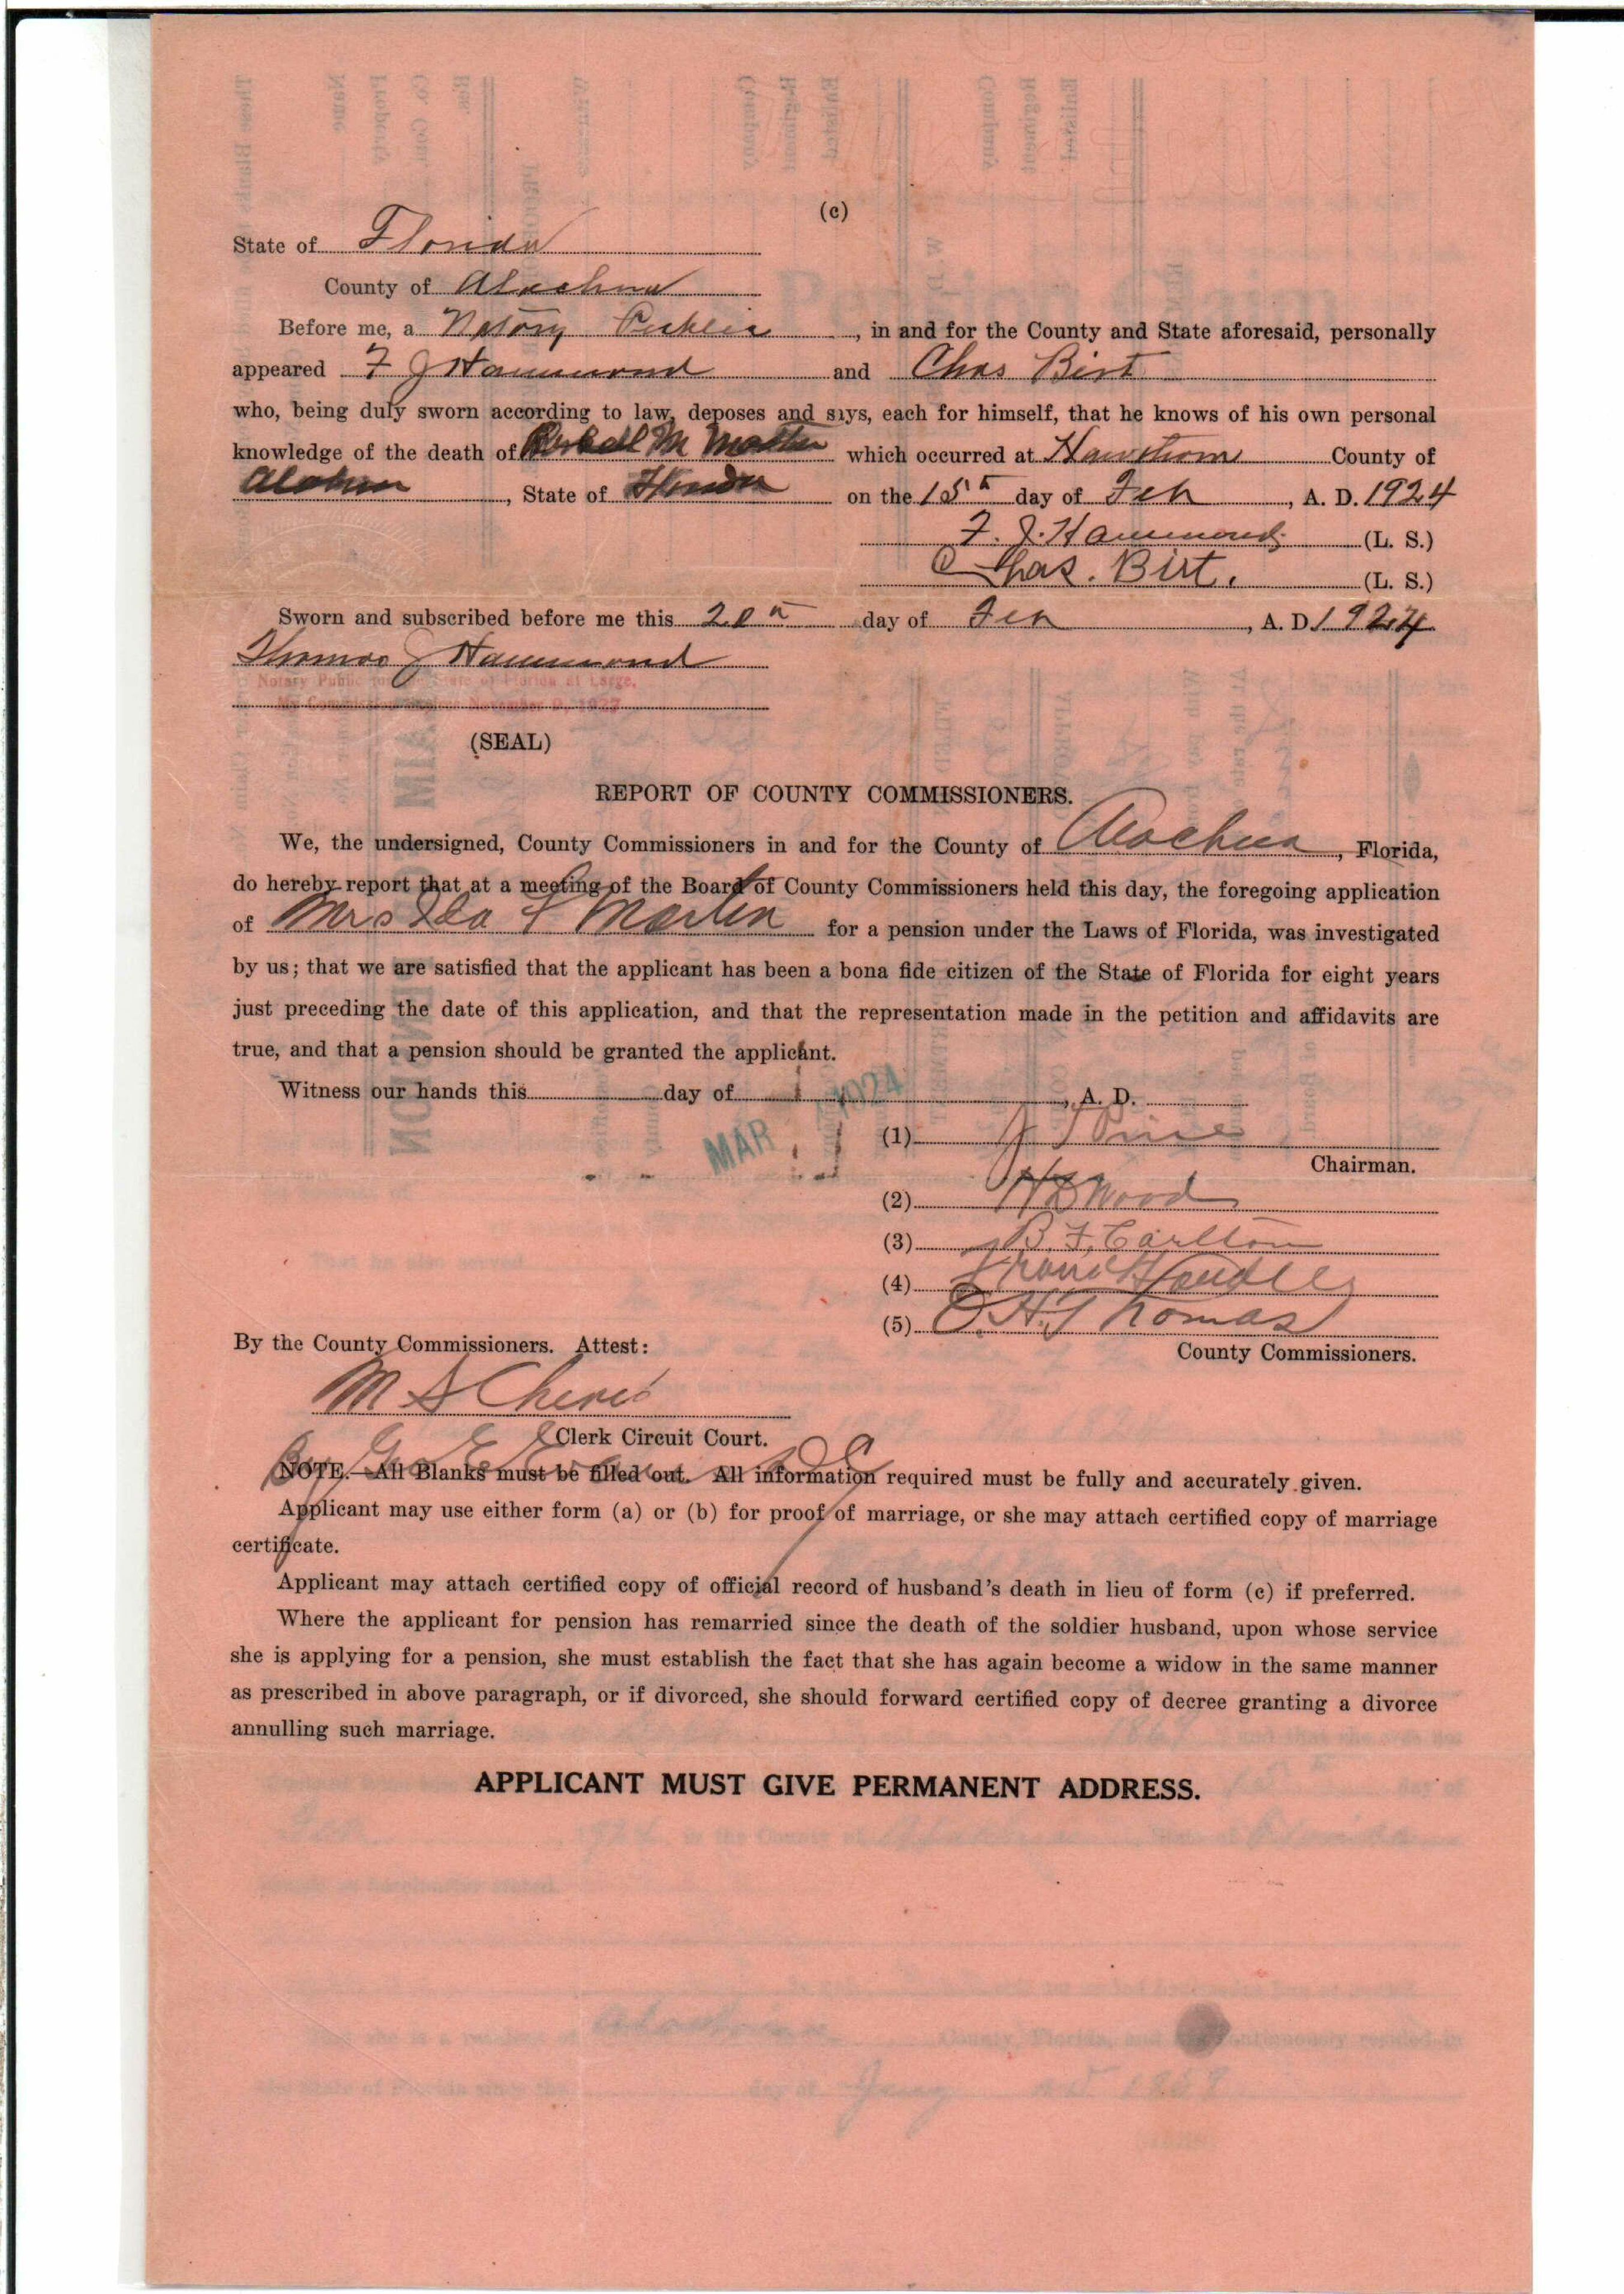 (c)
State of Florida
County of Alachua
Before me, a Notary Public, in and for the County and State aforesaid, personally
appeared F J Hammond and Chas Birt
who, being duly sworn according to law, deposes and says, each for himself, that he knows of his own personal
knowledge of the death of M Martin which occurred at Hawthorne County of
Alachua, State of Florida on the 15th day of Feb, A. D. 1924
F. J. Hammond (L. S.)
Chas. Birt. (L. S.)
Sworn and subscribed before me this 20th day of Feb, A. D. 1924
Thomas J Hammond
Notary Public State of Florida at Large.
My Commission Expires November 9, 1927
(SEAL)
REPORT OF COUNTY COMMISSIONERS.
We, the undersigned, County Commissioners in and for the County of Alachua, Florida,
do hereby report that at a meeting of the Board of County Commissioners held this day, the foregoing application
of Mrs Ida L Martin for a pension under the Laws of Florida, was investigated
by us; that we are satisfied that the applicant has been a bona fide citizen of the State of Florida for eight years
just preceding the date of this application, and that the representation made in the petition and affidavits are
true, and that a pension should be granted the applicant.
Witness our hands this day of, A. D.
MAR 1924
(1)
Chairman.
(2) H D Wood
(3) B. F. Carlton
(4)
(5) O. H. Thomas
By the County Commissioners. Attest:
County Commissioners.
M S Cheves
Clerk Circuit Court.
By Geo E Evans D C
NOTE.—All Blanks must be filled out. All information required must be fully and accurately given.
Applicant may use either form (a) or (b) for proof of marriage, or she may attach certified copy of marriage
certificate.
Applicant may attach certified copy of official record of husband's death in lieu of form (c) if preferred.
Where the applicant for pension has remarried since the death of the soldier husband, upon whose service
she is applying for a pension, she must establish the fact that she has again become a widow in the same manner
as prescribed in above paragraph, or if divorced, she should forward certified copy of decree granting a divorce
annulling such marriage.
APPLICANT MUST GIVE PERMANENT ADDRESS.